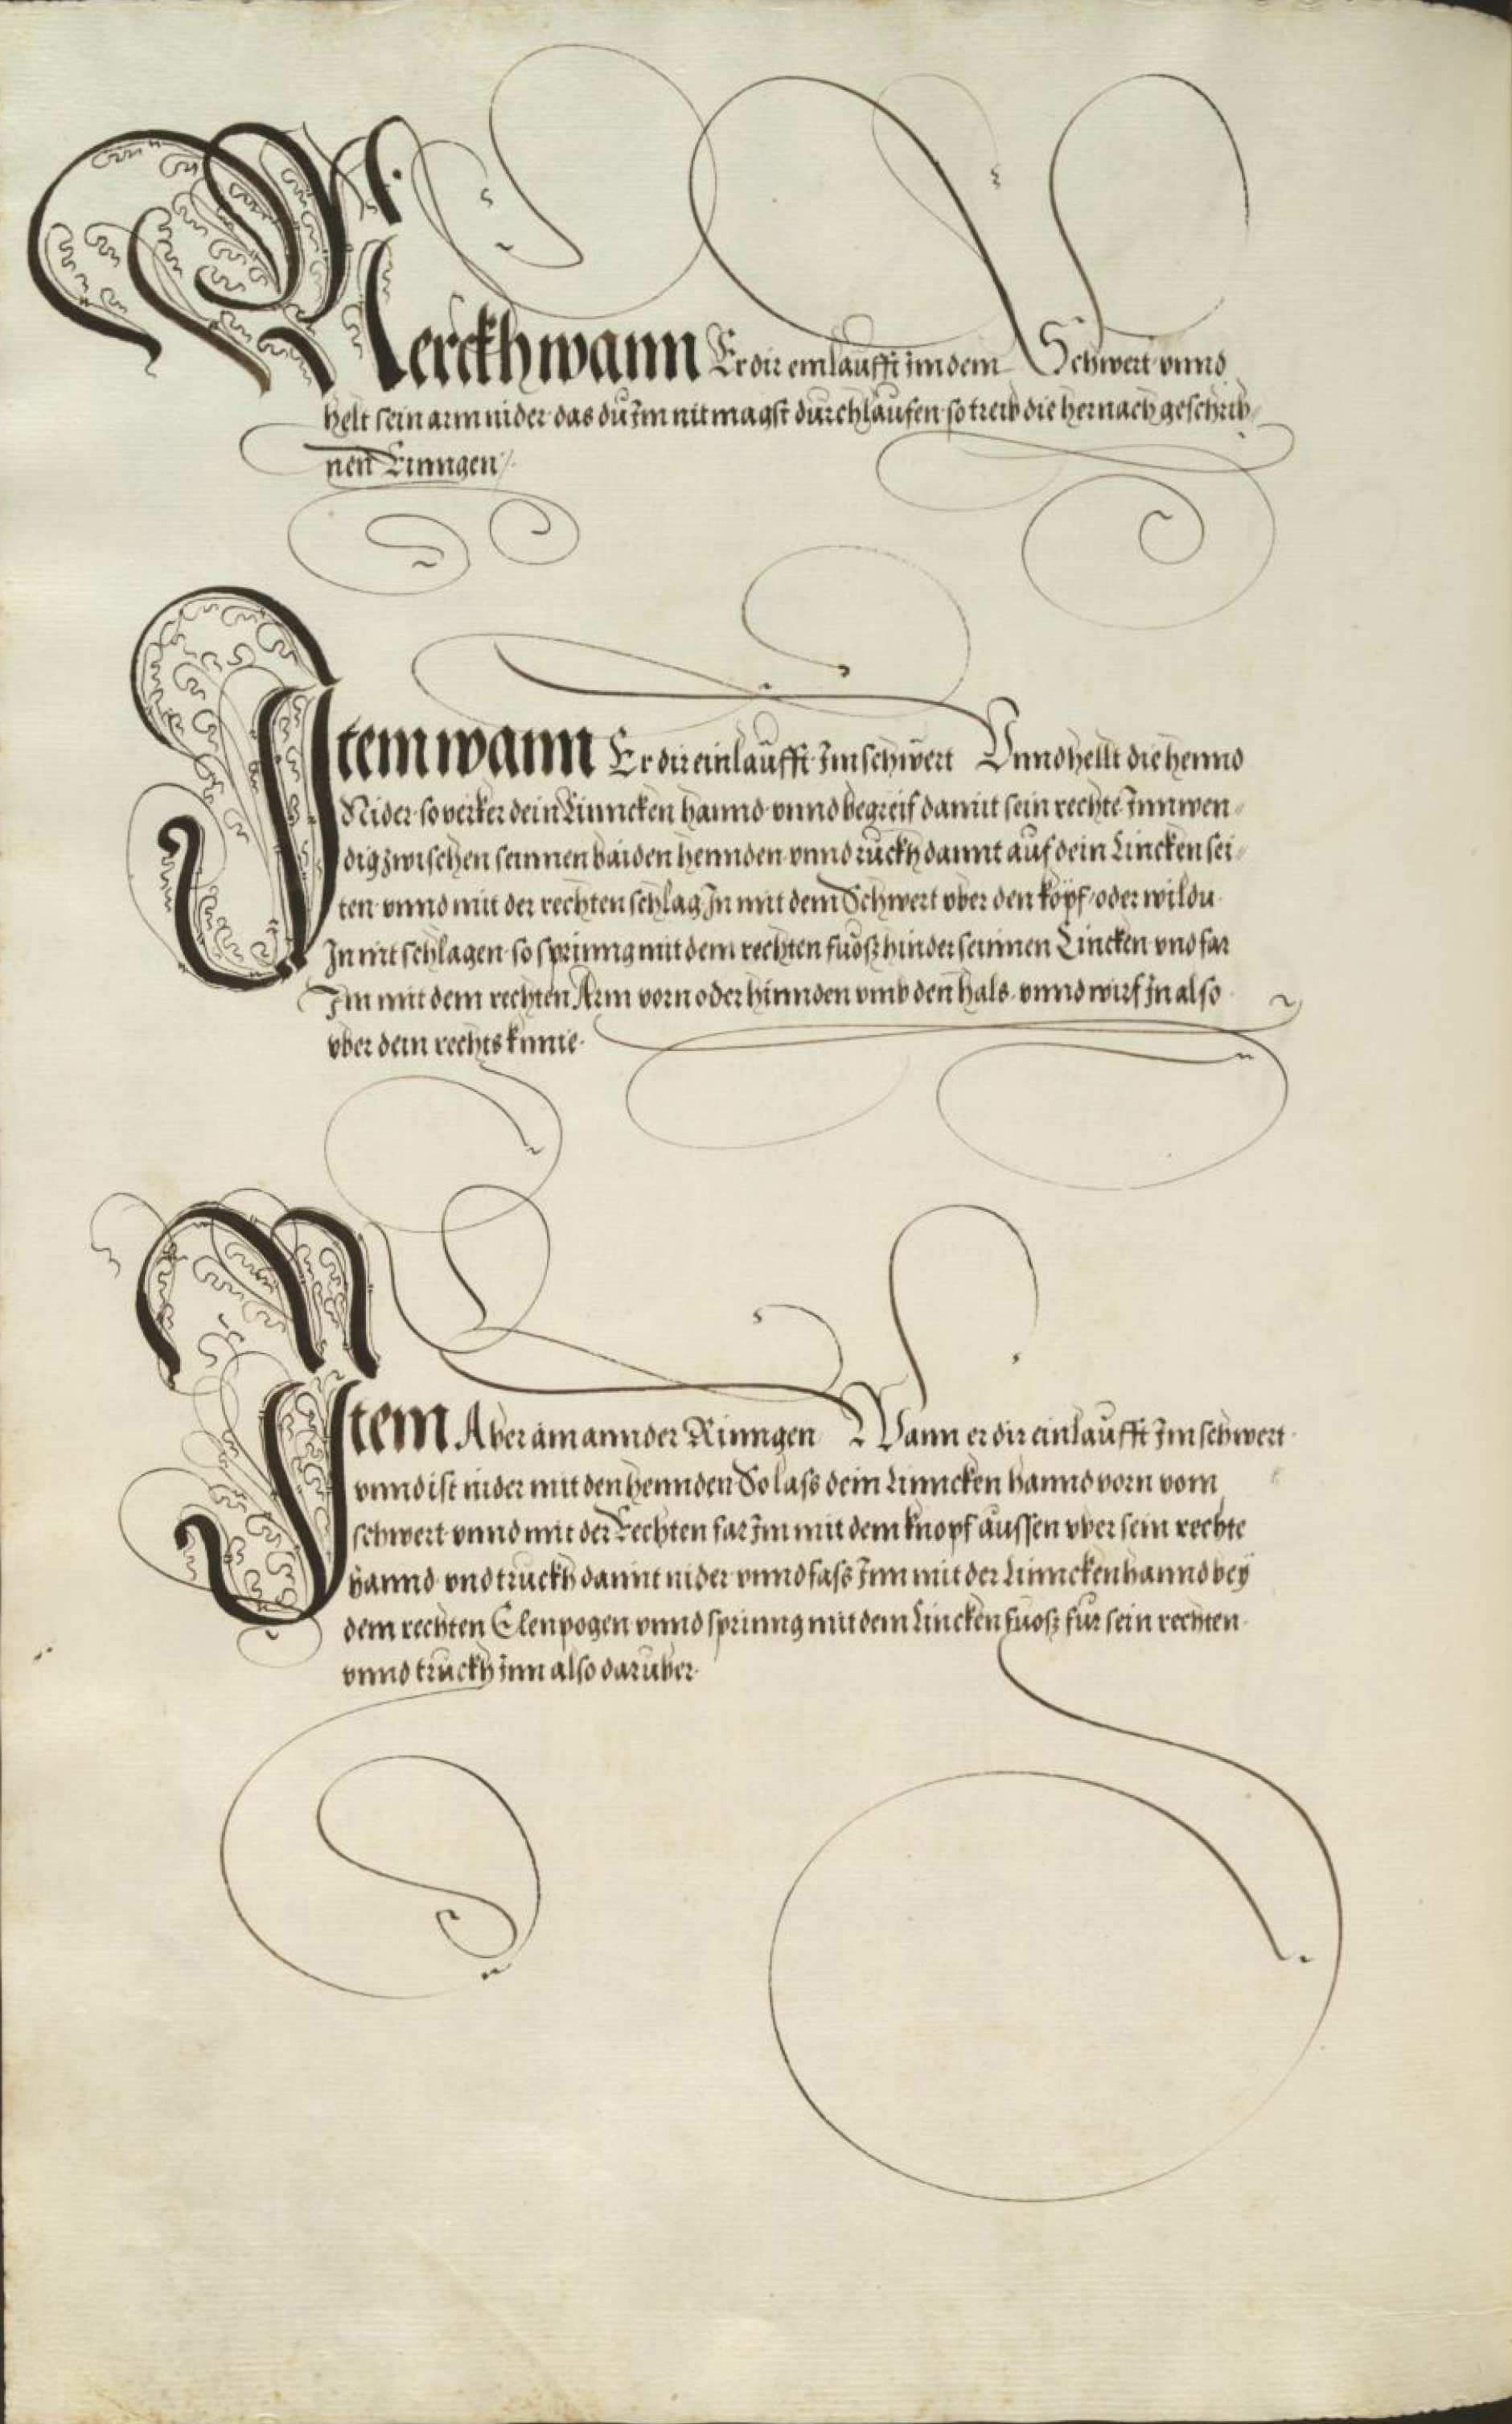 Merckh wann Er dir einlaufft im dem Schwert vnnd
helt sein arm nider das du Im nit magst durchlaufen so treib die hernach geschrib-
nen Rinngen
Item wann Er dir einlaufft Im schwert Vnnd hellt die hennd
Nider so verker dein Linncken hannd vnnd begreif damit sein rechte Innwen-
dig zwischen seinnen baiden hennden vnnd ruckh damit auf dein Lincken sei-
ten vnnd mit der rechten schlag In mit dem Schwert vber den kopf oder wildu
In nit schlagen so sprinng mit dem rechten fuosz hinder seinnen Lincken vnd far
Im mit dem rechten Arm vorn oder hinnden vmb den hals vnnd wirf In also
vber dein rechts knnie
Item Aber am annder Rinngen Wann er dir einlaufft Im schwert
vnnd ist nider mit den hennden So lass dein Linncken hannd vorn vom
schwert vnnd mit der Rechten far Im mit dem knopf aussen vber sein rechte
hannd vnd truckh damit nider vnnd fass Inn mit der Linncken hannd bey
dem rechten Elenpogen vnnd sprinng mit dem Lincken fuosz fur sein rechten
vnnd truckh Inn also daruber